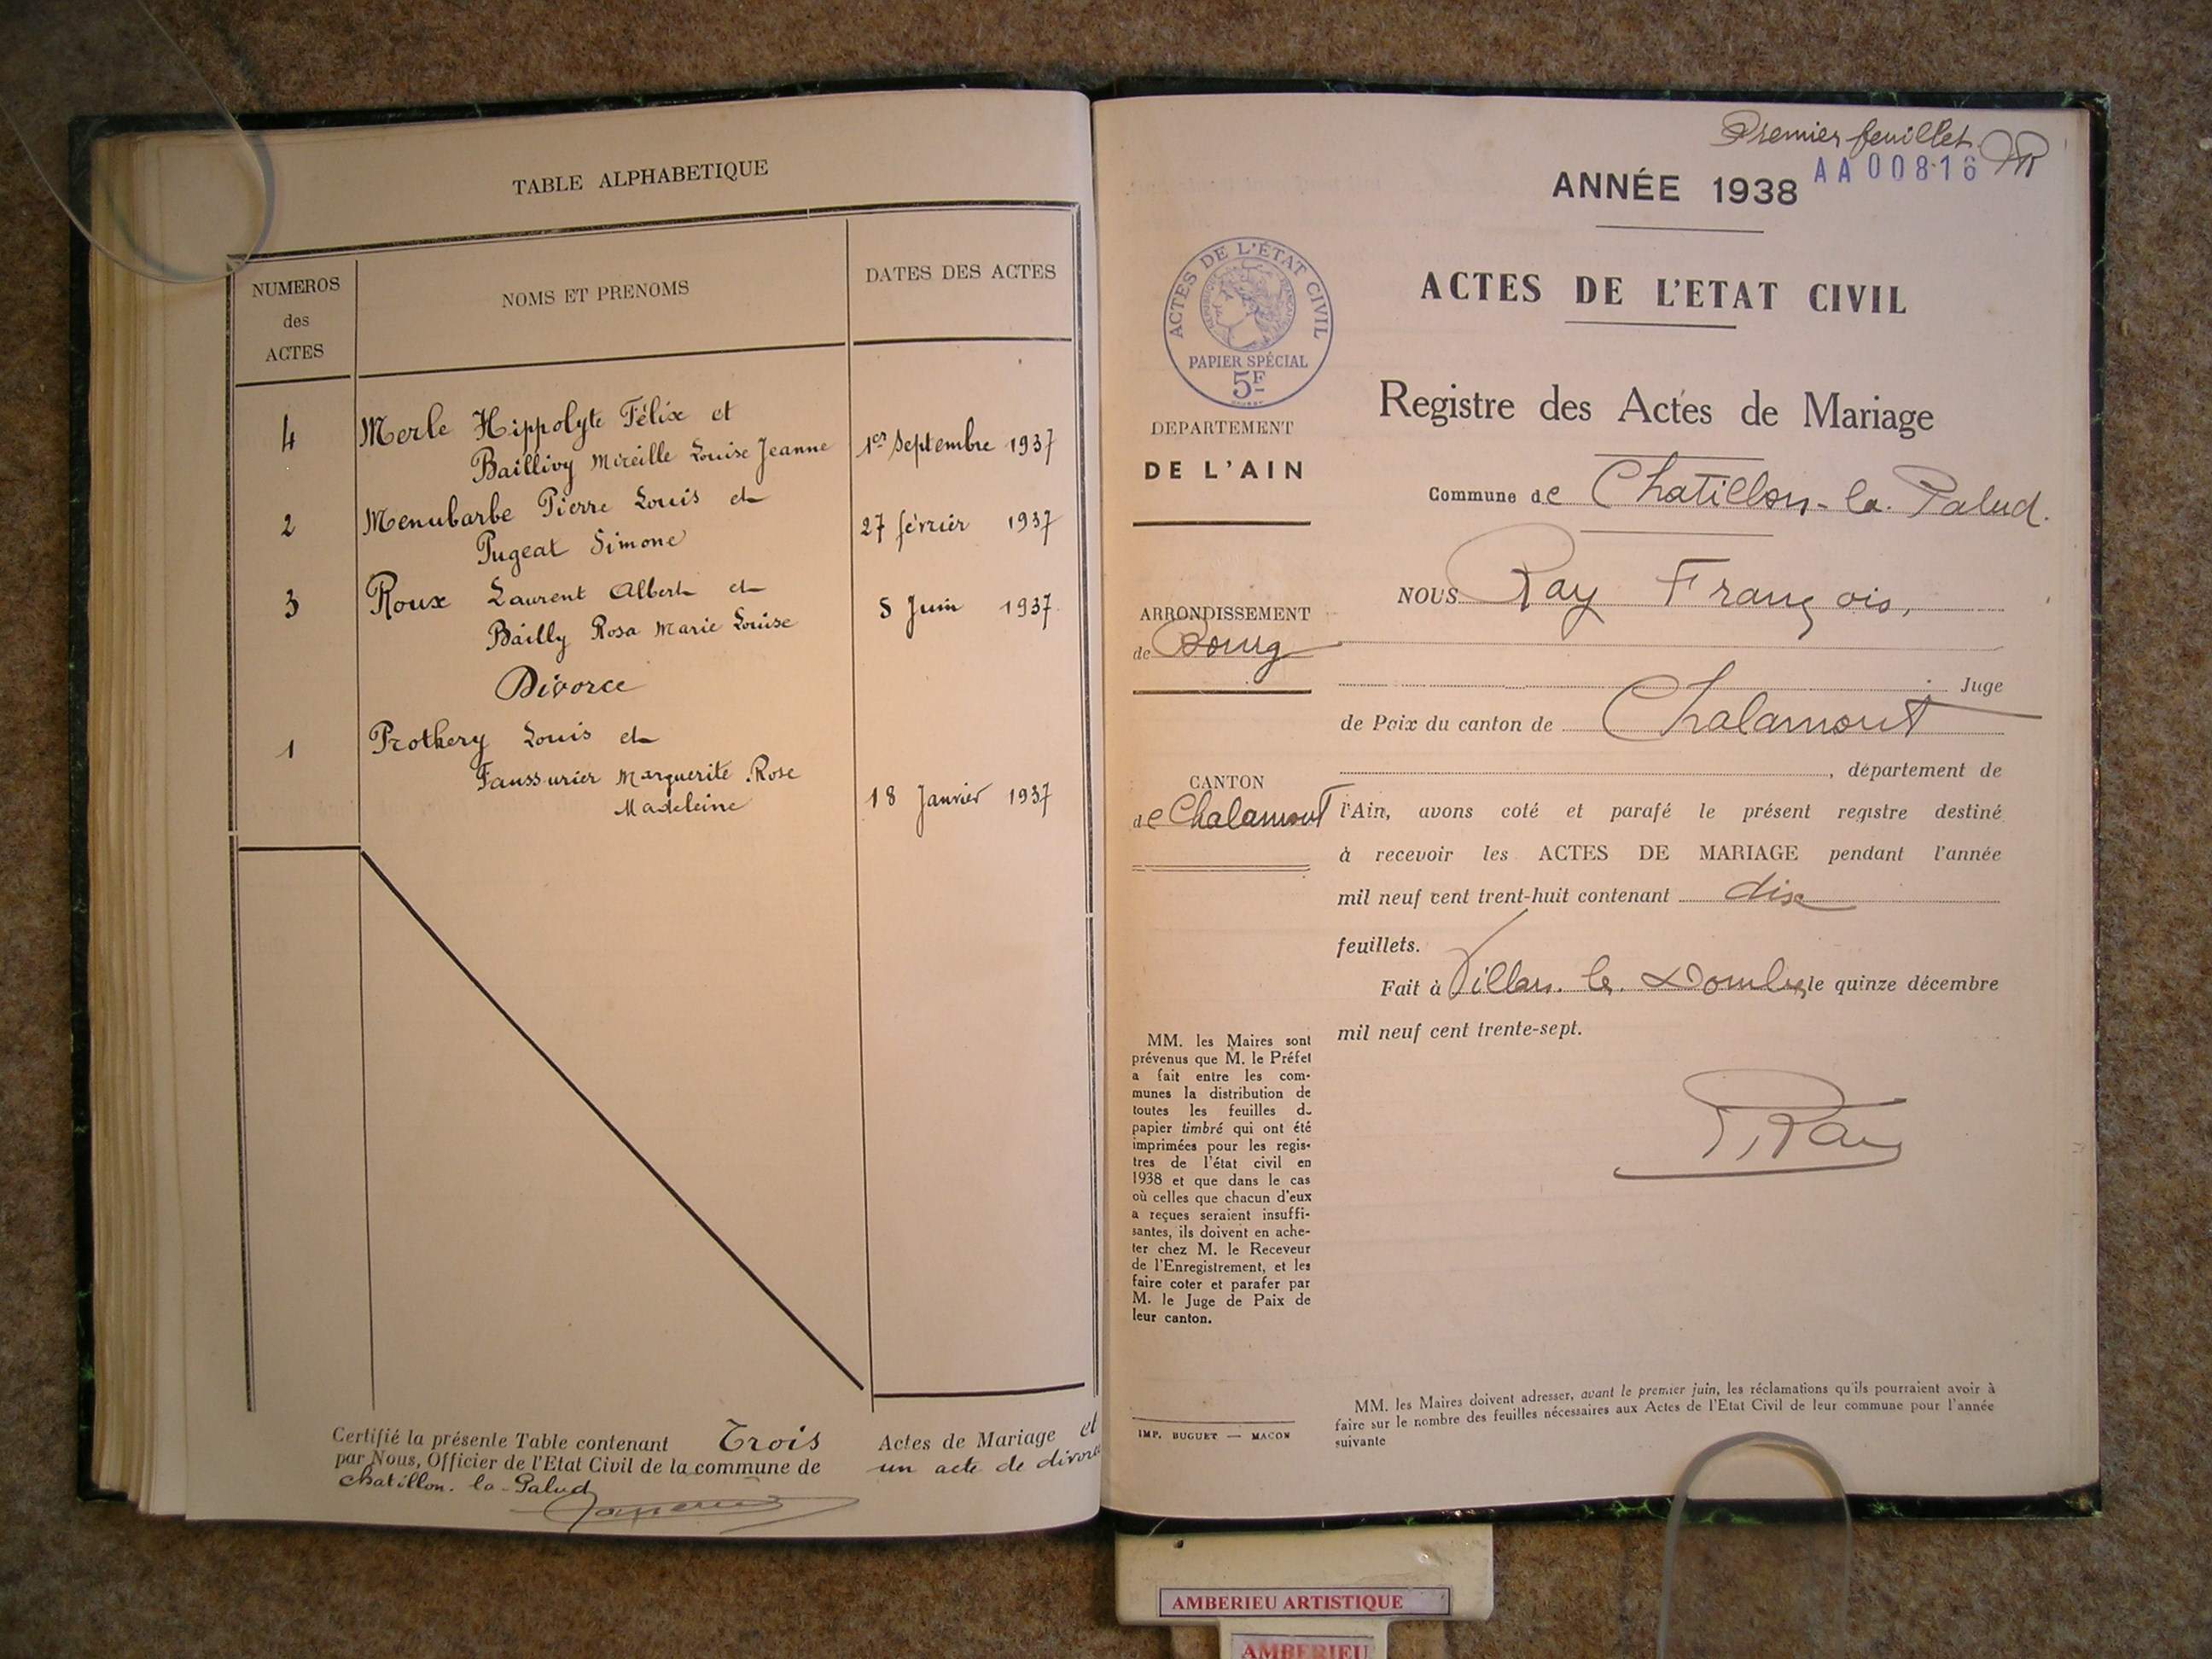 TABLE ALPHABETIQUE
NUMEROS
des
ACTES
NOMS ET PRENOMS
DATES DES ACTES
4 Merle Hippolyte Félix et
Baillivy Mireille Louise Jeanne 1er Septembre 1937
2 Menubarbe Pierre Louis et
Pugeat Simone 27 février 1937
3 Roux Laurent Albert et
Bailly Rosa Marie Louise 5 Juin 1937
Divorce
1 Prothery Louis et
Faussurier Marguerite Rose
Madeleine 18 Janvier 1937
Certifié la présente Table contenant Trois Actes de Mariage et
par Nous, Officier de l'Etat Civil de la commune de un acte de divorce
Chatillon-la-Palud
Premier feuillet
AA 00816
ANNÉE 1938
ACTES DE L'ETAT CIVIL
ACTES DE L'ÉTAT CIVIL
RÉPUBLIQUE FRANÇAISE
PAPIER SPÉCIAL
5F
Registre des Actes de Mariage
DEPARTEMENT
DE L'AIN
Commune de Chatillon-la-Palud.
NOUS Ray François,
ARRONDISSEMENT
de Bourg
Juge
de Paix du canton de Chalamont
, département de
CANTON
de Chalamont
l'Ain, avons coté et parafé le présent registre destiné
à recevoir les ACTES DE MARIAGE pendant l'année
mil neuf cent trent-huit contenant dix
feuillets.
Fait à Villars les Dombes le quinze décembre
mil neuf cent trente-sept.
F. Ray
MM. les Maires sont
prévenus que M. le Préfet
a fait entre les com-
munes la distribution de
toutes les feuilles de
papier timbré qui ont été
imprimées pour les regis-
tres de l'état civil en
1938 et que dans le cas
où celles que chacun d'eux
a reçues seraient insuffi-
santes, ils doivent en ache-
ter chez M. le Receveur
de l'Enregistrement, et les
faire coter et parafer par
M. le Juge de Paix de
leur canton.
IMP. BUGUET — MACON
MM. les Maires doivent adresser, avant le premier juin, les réclamations qu'ils pourraient avoir à
faire sur le nombre des feuilles nécessaires aux Actes de l'Etat Civil de leur commune pour l'année
suivante
AMBERIEU ARTISTIQUE
AMBERIEU